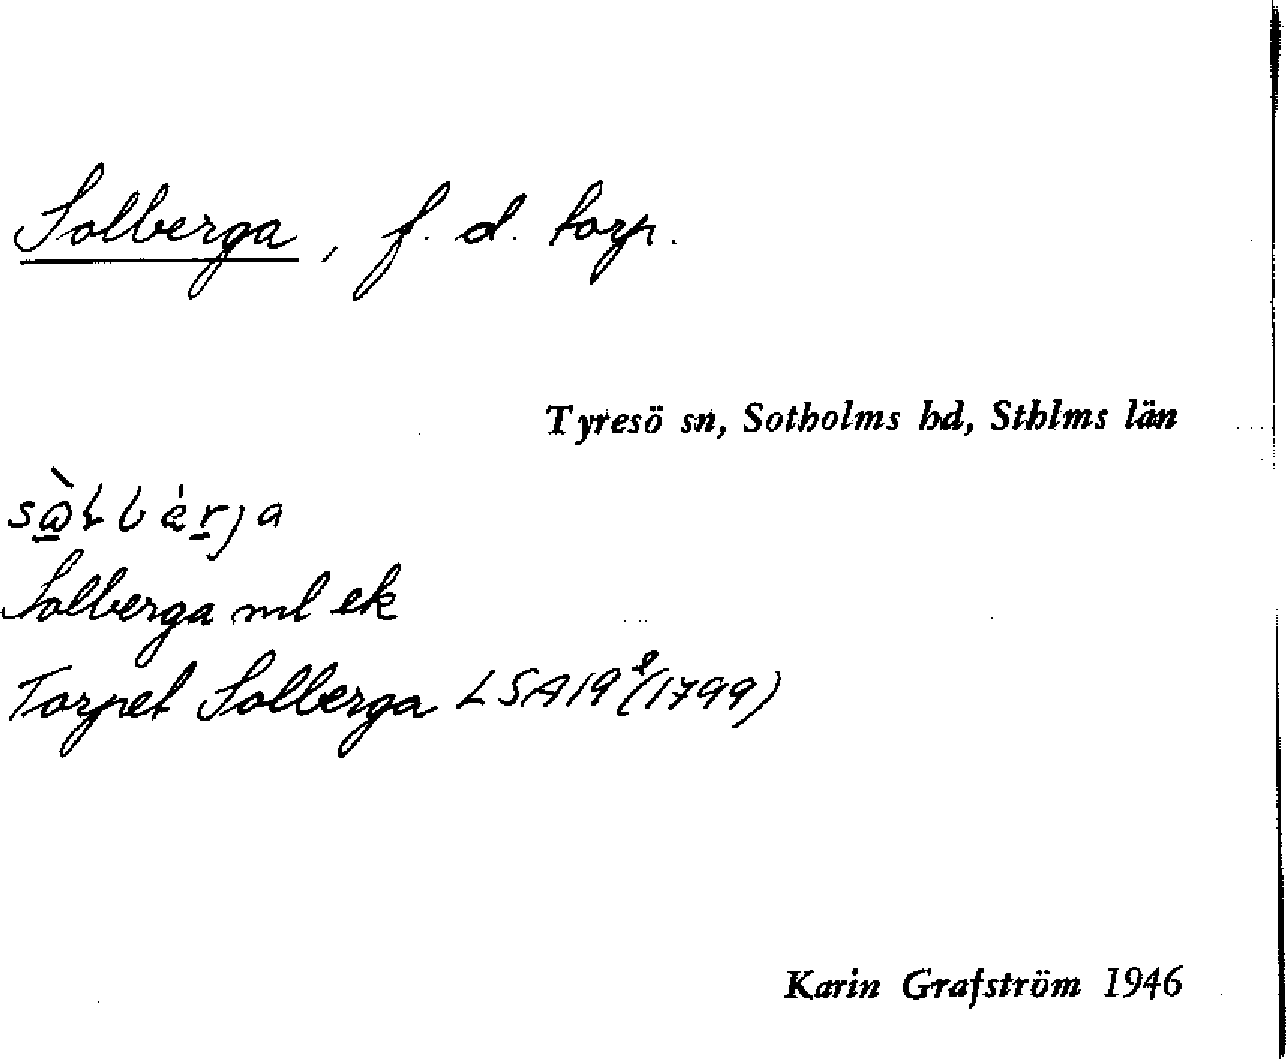 Solberga, f. d. torp.
Tyresö sn, Sotholms hd, Sthlms län
Solberga ml ek
Torpet Solberga LSA19ᵉ(1799)
Karin Grafström 1946